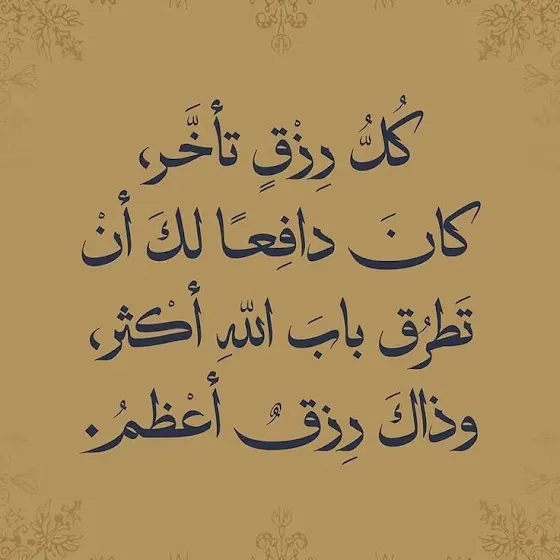 كُلُّ رِزْقٍ تأخَّر،
كانَ دافِعًا لكَ أنْ
تَطرُق بابَ اللهِ أكْثر،
وذاكَ رِزقٌ أعْظمُ.